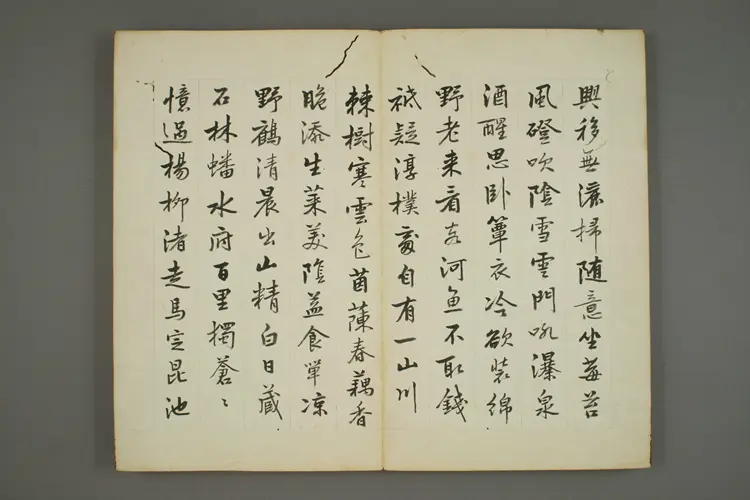 興移無灑掃随意坐莓苔
風磴吹陰雪雲門吼瀑泉
酒醒思卧簟衣冷欲裝綿
野老来看客河魚不取錢
祇疑淳樸處自有一山川
棘樹寒雲色茵蔯春藕香
脆添生菜美陰益食單凉
野鶴清晨出山精白日蔵
石林蟠水府百里獨蒼〻
憶過楊柳渚走馬定昆池